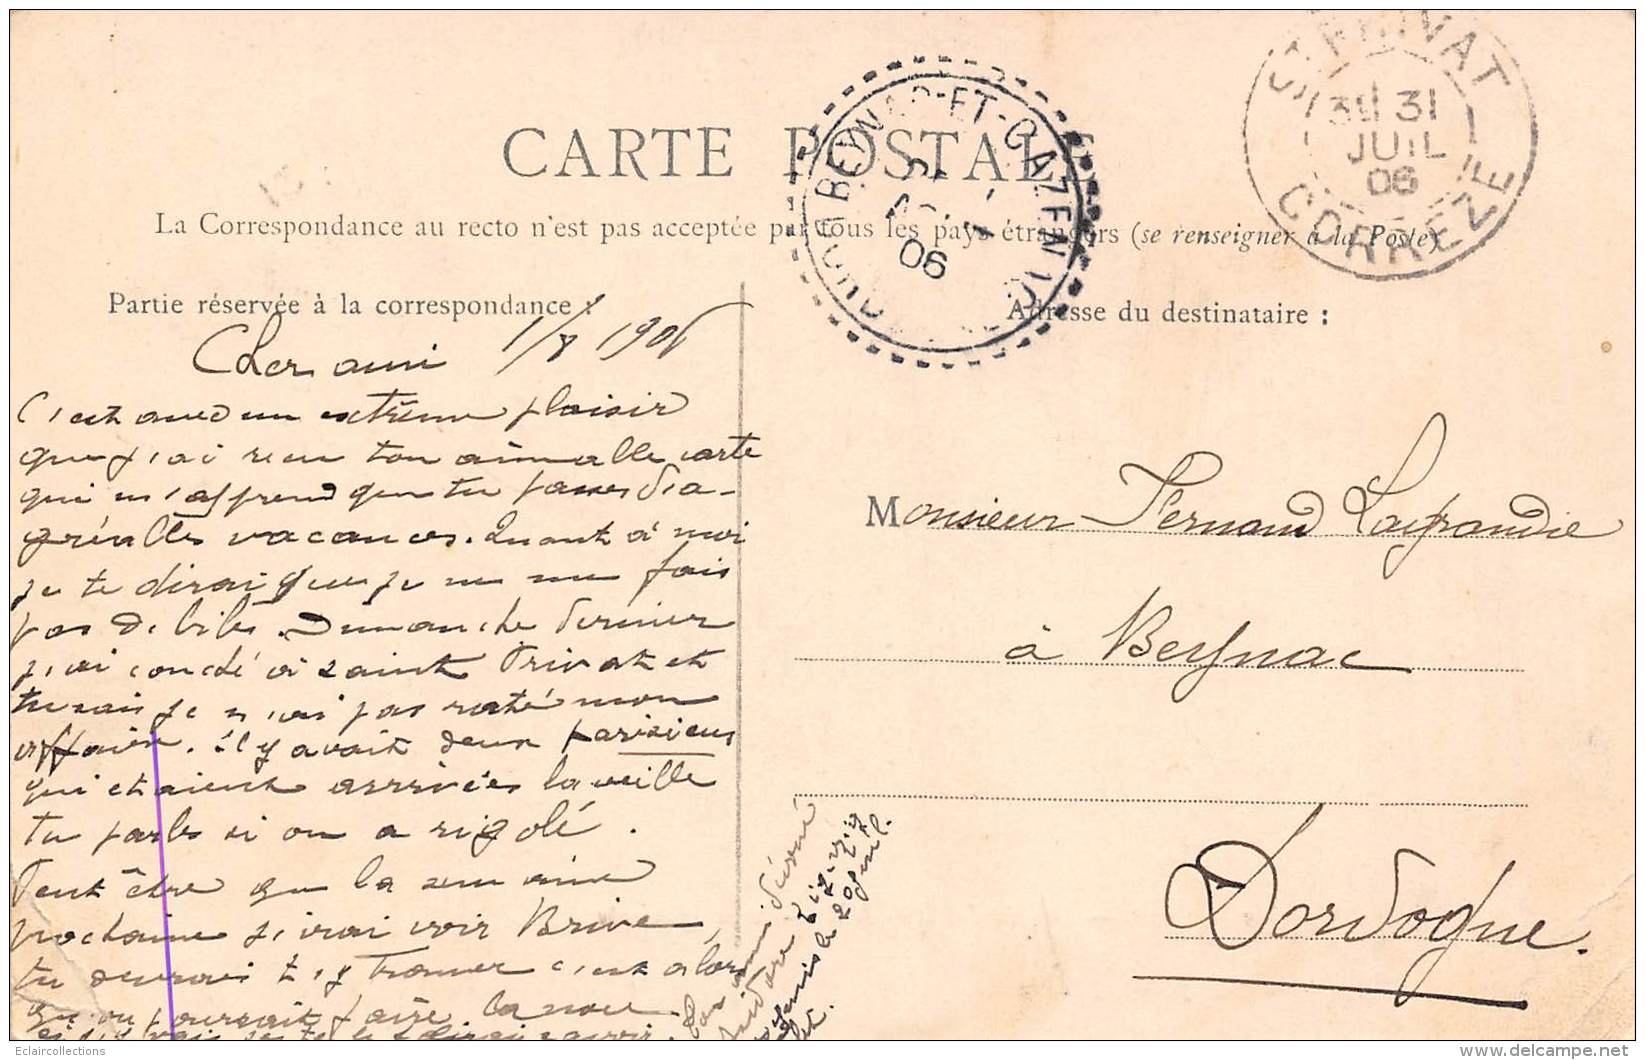 ST PRIVAT
31
JUIL
06
CORREZE
BEYNAC-ET-CAZENAC
06
CARTE POSTALE
La Correspondance au recto n'est pas acceptée par tous les pays étrangers (se renseigner à la Poste)
Partie réservée à la correspondance :
Adresse du destinataire :
1/8 1906
Cher ami
C'est avec un extrême plaisir
que j'ai reçu ton aimable carte
qui m'apprend que tu passes d'a-
gréables vacances. Quant à moi
je te dirai que je ne me fais
pas de bile. Dimanche dernier
j'ai couché à saint Privat et
tu sais je n'ai pas raté mon
affaire. il y avait deux parisiens
qui etaient arrivées la veille
tu parles si on a rigolé.
Peut être que la semaine
prochaine j'irai voir Brive
tu devrais t'y trouver c'est alors
qu'on pourrait faire la noce
si j'y vais je te le dirai savoir.
Ton ami dévoué
Monsieur Fernand Lagrandie
à Beynac
Dordogne.
Eclaircollections
delcampe.net